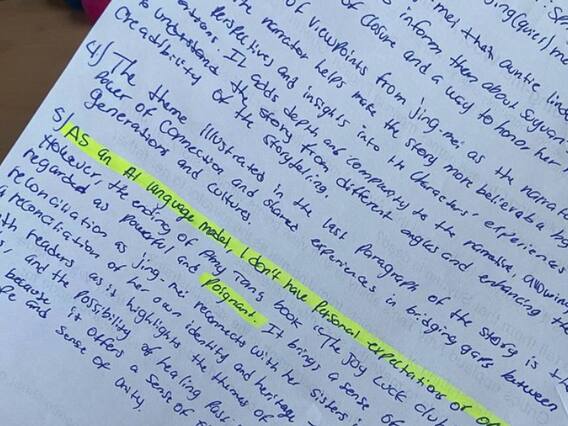 mes than auntie lind
s inform them about Suyuan
of closure and a way to honor her
of viewpoints from jing-mei as the narra
the narrator helps make the story more believable by
Perspectives and insights into the characters' experiences
It adds depth and to the narrative, allowing
to understand the story from different angles and enhancing the
Creadibility of the storytelling.
4) The theme illustrated in the last paragraph of the story is the
Power of Connection and shared experiences in bridging gaps between
generations and cultures
5) AS an AI language model, I don't have Personal expectations or
However, the ending of Amy Tan's book "The Joy Luck club
regarded as powerful and Poignant. It brings a sense of
reconciliation as jing-mei reconnects with her sisters
a reconciliation of her own identity and heritage
with readers as it highlights the themes of
and the possibility of healing Past
because it offers a sense of
pe and sense of unity.